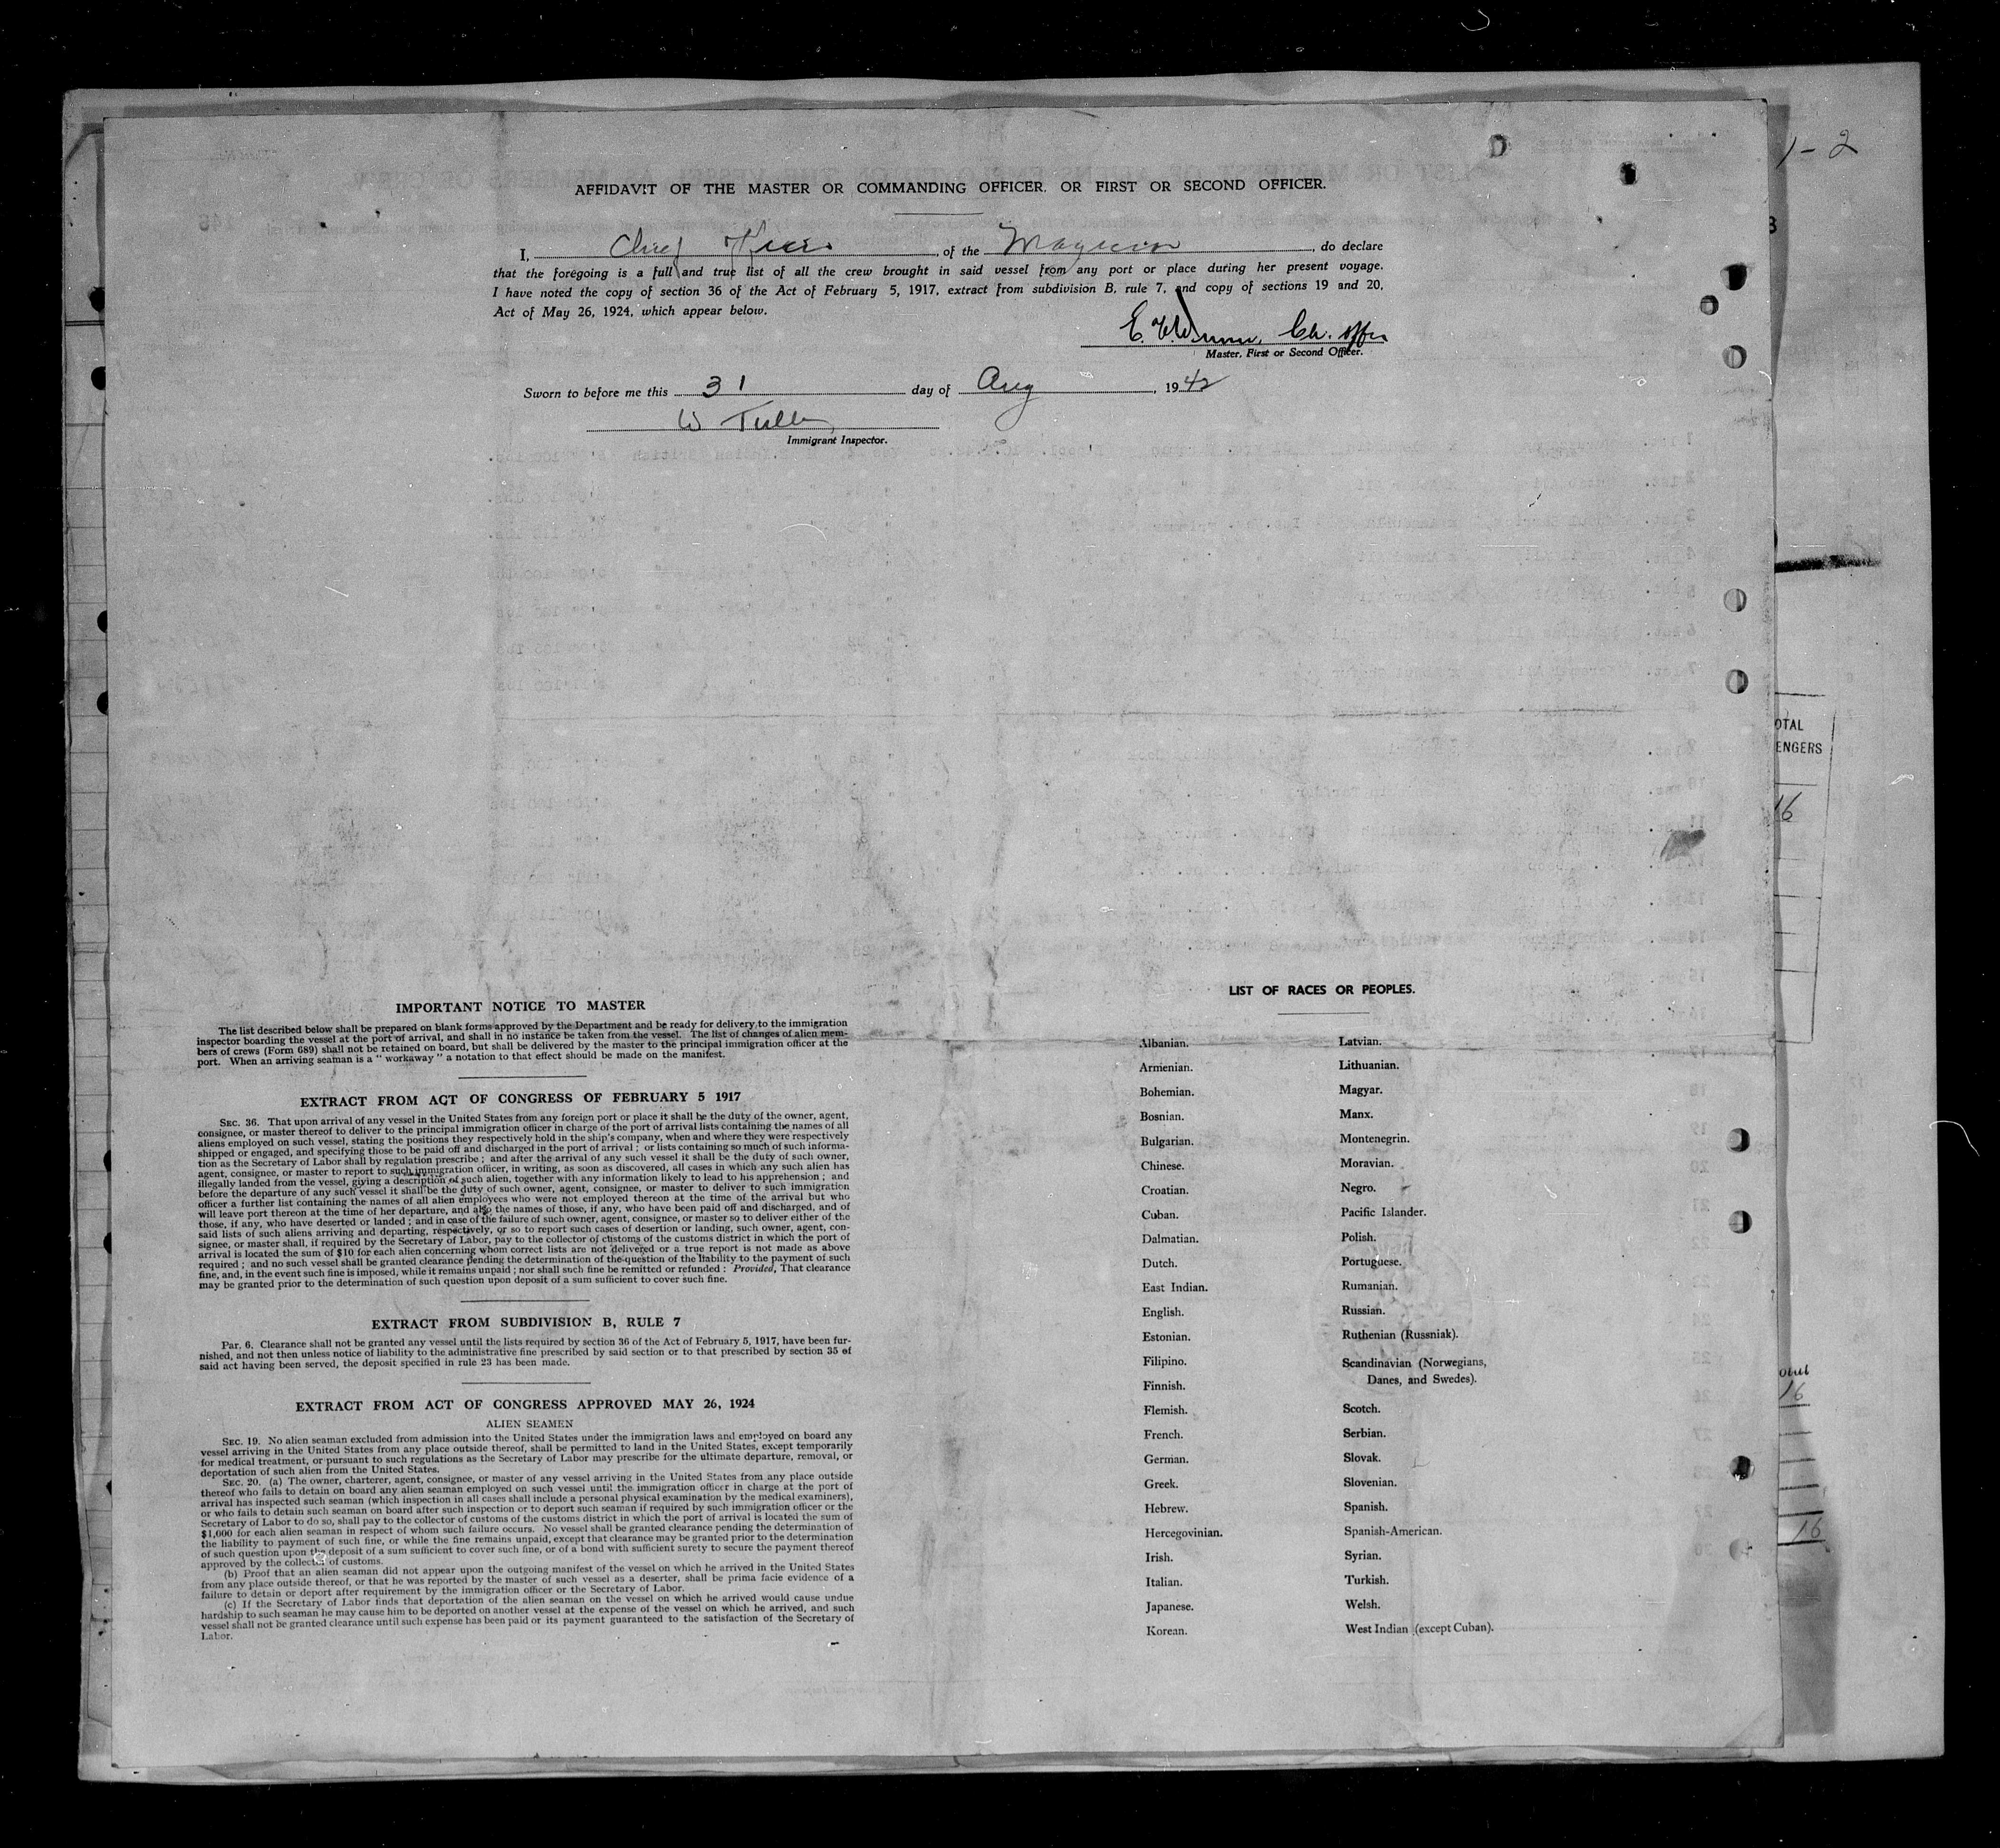 1-2
AFFIDAVIT OF THE MASTER OR COMMANDING OFFICER, OR FIRST OR SECOND OFFICER.
I, Chief Officer, of the, do declare
that the foregoing is a full and true list of all the crew brought in said vessel from any port or place during her present voyage.
I have noted the copy of section 36 of the Act of February 5, 1917, extract from subdivision B, rule 7, and copy of sections 19 and 20,
Act of May 26, 1924, which appear below.
Ch. Offr
Master, First or Second Officer.
Sworn to before me this 31 day of Aug, 1942
W
Immigrant Inspector.
OTAL
ENGERS
16
IMPORTANT NOTICE TO MASTER
The list described below shall be prepared on blank forms approved by the Department and be ready for delivery to the immigration
inspector boarding the vessel at the port of arrival, and shall in no instance be taken from the vessel. The list of changes of alien mem-
bers of crews (Form 689) shall not be retained on board, but shall be delivered by the master to the principal immigration officer at the
port. When an arriving seaman is a " workaway " a notation to that effect should be made on the manifest.
EXTRACT FROM ACT OF CONGRESS OF FEBRUARY 5 1917
SEC. 36. That upon arrival of any vessel in the United States from any foreign port or place it shall be the duty of the owner, agent,
consignee, or master thereof to deliver to the principal immigration officer in charge of the port of arrival lists containing the names of all
aliens employed on such vessel, stating the positions they respectively hold in the ship's company, when and where they were respectively
shipped or engaged, and specifying those to be paid off and discharged in the port of arrival ; or lists containing so much of such informa-
tion as the Secretary of Labor shall by regulation prescribe ; and after the arrival of any such vessel it shall be the duty of such owner,
agent, consignee, or master to report to such immigration officer, in writing, as soon as discovered, all cases in which any such alien has
illegally landed from the vessel, giving a description of such alien, together with any information likely to lead to his apprehension ; and
before the departure of any such vessel it shall be the duty of such owner, agent, consignee, or master to deliver to such immigration
officer a further list containing the names of all alien employees who were not employed thereon at the time of the arrival but who
will leave port thereon at the time of her departure, and also the names of those, if any, who have been paid off and discharged, and of
those, if any, who have deserted or landed ; and in case of the failure of such owner, agent, consignee, or master so to deliver either of the
said lists of such aliens arriving and departing, respectively, or so to report such cases of desertion or landing, such owner, agent, con-
signee, or master shall, if required by the Secretary of Labor, pay to the collector of customs of the customs district in which the port of
arrival is located the sum of $10 for each alien concerning whom correct lists are not delivered or a true report is not made as above
required ; and no such vessel shall be granted clearance pending the determination of the question of the liability to the payment of such
fine, and, in the event such fine is imposed, while it remains unpaid ; nor shall such fine be remitted or refunded : Provided, That clearance
may be granted prior to the determination of such question upon deposit of a sum sufficient to cover such fine.
EXTRACT FROM SUBDIVISION B, RULE 7
Par. 6. Clearance shall not be granted any vessel until the lists required by section 36 of the Act of February 5, 1917, have been fur-
nished, and not then unless notice of liability to the administrative fine prescribed by said section or to that prescribed by section 35 of
said act having been served, the deposit specified in rule 23 has been made.
EXTRACT FROM ACT OF CONGRESS APPROVED MAY 26, 1924
ALIEN SEAMEN
SEC. 19. No alien seaman excluded from admission into the United States under the immigration laws and employed on board any
vessel arriving in the United States from any place outside thereof, shall be permitted to land in the United States, except temporarily
for medical treatment, or pursuant to such regulations as the Secretary of Labor may prescribe for the ultimate departure, removal, or
deportation of such alien from the United States.
SEC. 20. (a) The owner, charterer, agent, consignee, or master of any vessel arriving in the United States from any place outside
thereof who fails to detain on board any alien seaman employed on such vessel until the immigration officer in charge at the port of
arrival has inspected such seaman (which inspection in all cases shall include a personal physical examination by the medical examiners),
or who fails to detain such seaman on board after such inspection or to deport such seaman if required by such immigration officer or the
Secretary of Labor to do so, shall pay to the collector of customs of the customs district in which the port of arrival is located the sum of
$1,000 for each alien seaman in respect of whom such failure occurs. No vessel shall be granted clearance pending the determination of
the liability to payment of such fine, or while the fine remains unpaid, except that clearance may be granted prior to the determination
of such question upon the deposit of a sum sufficient to cover such fine, or of a bond with sufficient surety to secure the payment thereof
approved by the collector of customs.
(b) Proof that an alien seaman did not appear upon the outgoing manifest of the vessel on which he arrived in the United States
from any place outside thereof, or that he was reported by the master of such vessel as a deserter, shall be prima facie evidence of a
failure to detain or deport after requirement by the immigration officer or the Secretary of Labor.
(c) If the Secretary of Labor finds that deportation of the alien seaman on the vessel on which he arrived would cause undue
hardship to such seaman he may cause him to be deported on another vessel at the expense of the vessel on which he arrived, and such
vessel shall not be granted clearance until such expense has been paid or its payment guaranteed to the satisfaction of the Secretary of
Labor.
LIST OF RACES OR PEOPLES.
Albanian.
Armenian.
Bohemian.
Bosnian.
Bulgarian.
Chinese.
Croatian.
Cuban.
Dalmatian.
Dutch.
East Indian.
English.
Estonian.
Filipino.
Finnish.
Flemish.
French.
German.
Greek.
Hebrew.
Hercegovinian.
Irish.
Italian.
Japanese.
Korean.
Latvian.
Lithuanian.
Magyar.
Manx.
Montenegrin.
Moravian.
Negro.
Pacific Islander.
Polish.
Portuguese.
Rumanian.
Russian.
Ruthenian (Russniak).
Scandinavian (Norwegians,
Danes, and Swedes).
Scotch.
Serbian.
Slovak.
Slovenian.
Spanish.
Spanish-American.
Syrian.
Turkish.
Welsh.
West Indian (except Cuban).
16
16